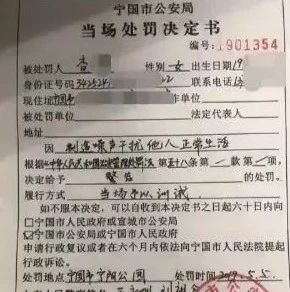 宁国市公安局
当场处罚决定书
编号:1901354
被处罚人 查 性别 女 出生日期19
身份证号码 342524 2 联系电话13
现住址 宁国市
被处罚单位 法定代表人
地址
因 制造噪声干扰他人正常生活
根据《中华人民共和国治安管理处罚法》第五十八条第一款第 项,
决定给予 警告 的处罚。
履行方式 当场予以训诫
如不服本决定,可以自收到本决定书之日起六十日内向
宁国市人民政府或宣城市公安局
宁国市公安局或宁国市人民政府
申请行政复议或者在六个月内依法向宁国市人民法院提起
行政诉讼。
处罚地点 宁国市宁阳公园 处罚时间 2019.5.5.